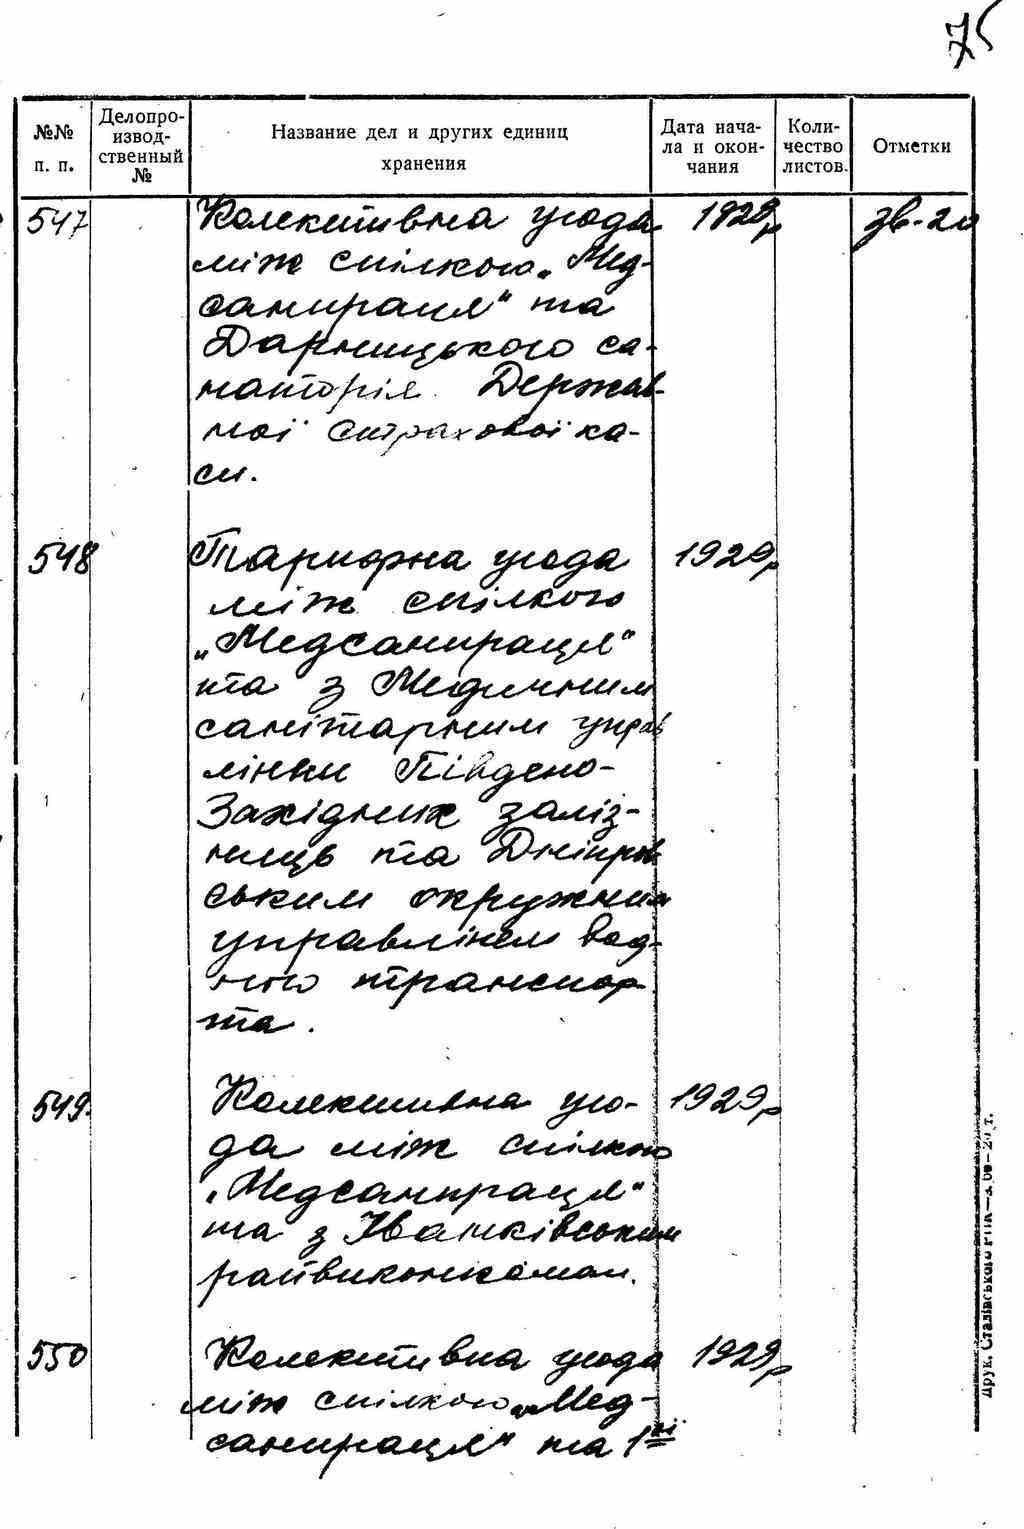 75
№№ п. п.
Делопро-
извод-
ственный
№
Название дел и других единиц
хранения
Дата нача-
ла и окон-
чания
Коли-
чество
листов.
Отметки
547 Колективна угода 1929р
між спілкою „Мед-
санпраця" та
Дарницького са-
наторія Держав-
ної страхової ка-
си.
548 Тарифна угода 1929р
між спілкою
„Медсанпраця"
та з Медичним
санітарним управ
лінни Південо-
Західних заліз-
ниць та Дніпров
ським окружним
управлінєм вод-
ного транспор-
та.
549. Колективна уго- 1929р
да між спілкою
„Медсанпраця"
та з Іванківським
райвиконкомом.
550 Колективна угода 1929р
між спілкою „Мед-
санпраця" та 1
Друк. Сталінського